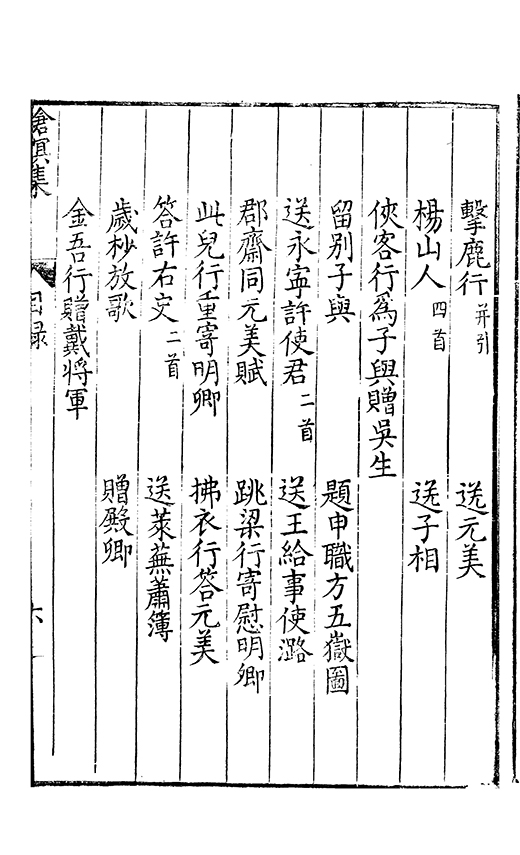 擊鹿行 并引 送元美
楊山人 四首 送子相
俠客行爲子與贈吳生
留別子與 題申職方五嶽圖
送永寧許使君 二首 送王給事使潞
郡齋同元美賦 跳梁行寄慰明卿
此兒行重寄明卿 拂衣行答元美
答許右史 二首 送萊蕪蕭簿
歲杪放歌 贈殿卿
金吾行贈戴將軍
滄溟集 目録 六